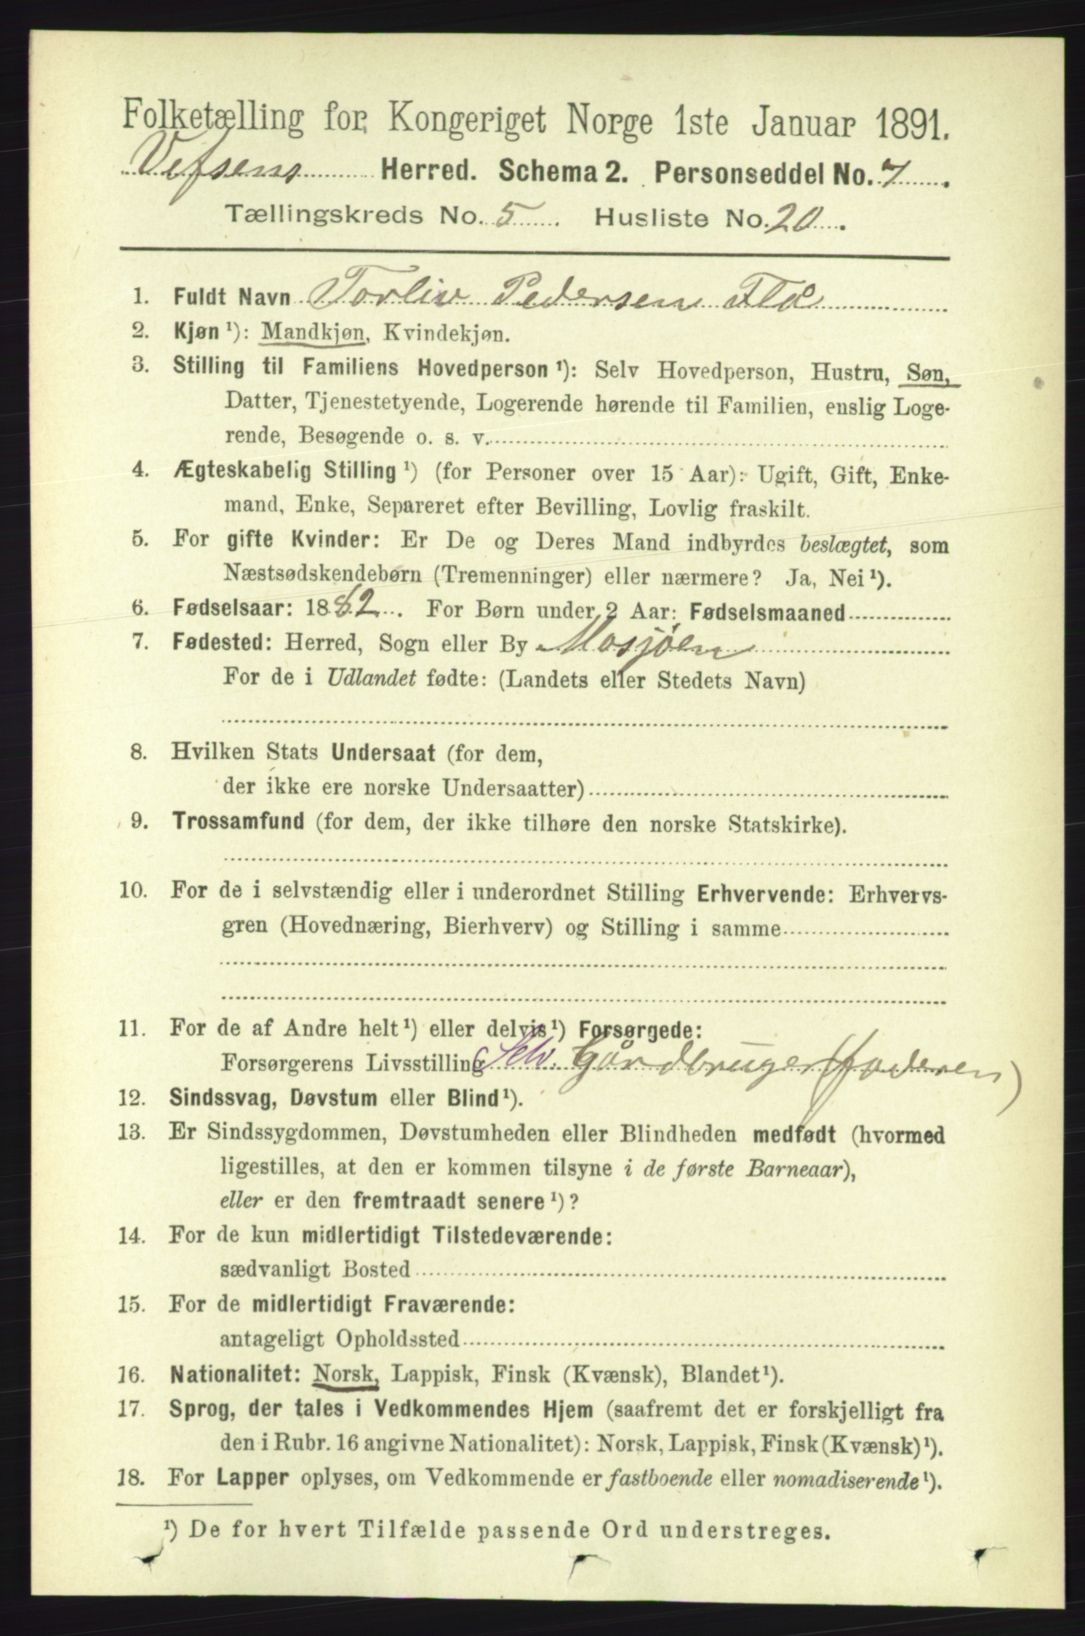 Folketælling for Kongeriget Norge 1ste Januar 1891.
Vefsens Herred. Schema 2. Personseddel No. 7.
Tællingskreds No. 5. Husliste No. 20.
1. Fuldt Navn Torliv Pedersen
2. Kjøn ¹): Mandkjøn, Kvindekjøn.
3. Stilling til Familiens Hovedperson ¹): Selv Hovedperson, Hustru, Søn,
Datter, Tjenestetyende, Logerende hørende til Familien, enslig Loge-
rende, Besøgende o. s. v.
4. Ægteskabelig Stilling ¹) (for Personer over 15 Aar): Ugift, Gift, Enke-
mand, Enke, Separeret efter Bevilling, Lovlig fraskilt.
5. For gifte Kvinder: Er De og Deres Mand indbyrdes beslægtet, som
Næstsødskendebørn (Tremenninger) eller nærmere? Ja, Nei ¹).
6. Fødselsaar: 1882. For Børn under 2 Aar: Fødselsmaaned
7. Fødested: Herred, Sogn eller By Mosjøen
For de i Udlandet fødte: (Landets eller Stedets Navn)
8. Hvilken Stats Undersaat (for dem,
der ikke ere norske Undersaatter)
9. Trossamfund (for dem, der ikke tilhøre den norske Statskirke).
10. For de i selvstændig eller i underordnet Stilling Erhvervende: Erhvervs-
gren (Hovednæring, Bierhverv) og Stilling i samme
11. For de af Andre helt ¹) eller delvis ¹) Forsørgede:
Forsørgerens Livsstilling Selv. Gårdbruger (faderen)
12. Sindssvag, Døvstum eller Blind ¹).
13. Er Sindssygdommen, Døvstumheden eller Blindheden medfødt (hvormed
ligestilles, at den er kommen tilsyne i de første Barneaar),
eller er den fremtraadt senere ¹)?
14. For de kun midlertidigt Tilstedeværende:
sædvanligt Bosted
15. For de midlertidigt Fraværende:
antageligt Opholdssted
16. Nationalitet: Norsk, Lappisk, Finsk (Kvænsk), Blandet ¹).
17. Sprog, der tales i Vedkommendes Hjem (saafremt det er forskjelligt fra
den i Rubr. 16 angivne Nationalitet): Norsk, Lappisk, Finsk (Kvænsk) ¹).
18. For Lapper oplyses, om Vedkommende er fastboende eller nomadiserende ¹).
¹) De for hvert Tilfælde passende Ord understreges.